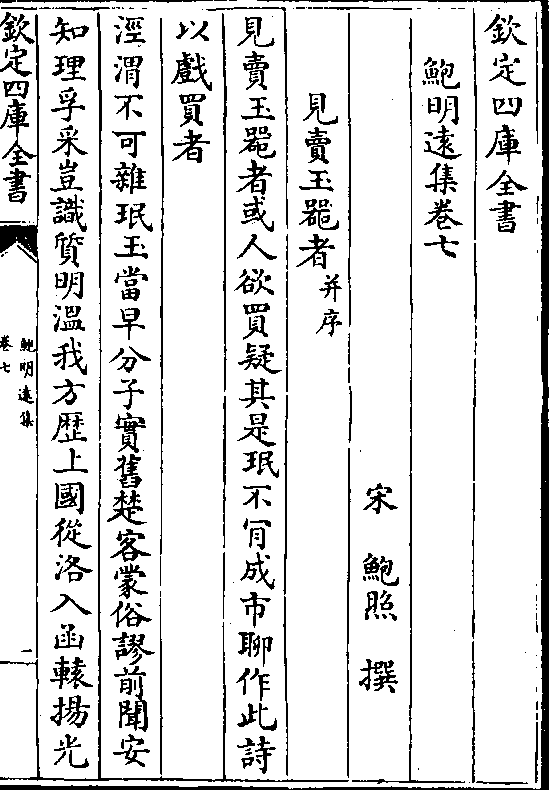 欽定四庫全書
鮑明遠集卷七
宋 鮑照 撰
見賣玉器者并序
見賣玉器者或人欲買疑其是珉不肎成市聊作此詩
以戲買者
涇渭不可雜珉玉當早分子實舊楚客蒙俗謬前聞安
知理孚采豈識質明溫我方歴上國從洛入函轅揚光
欽定四庫全書
鮑明遠集
卷七
一